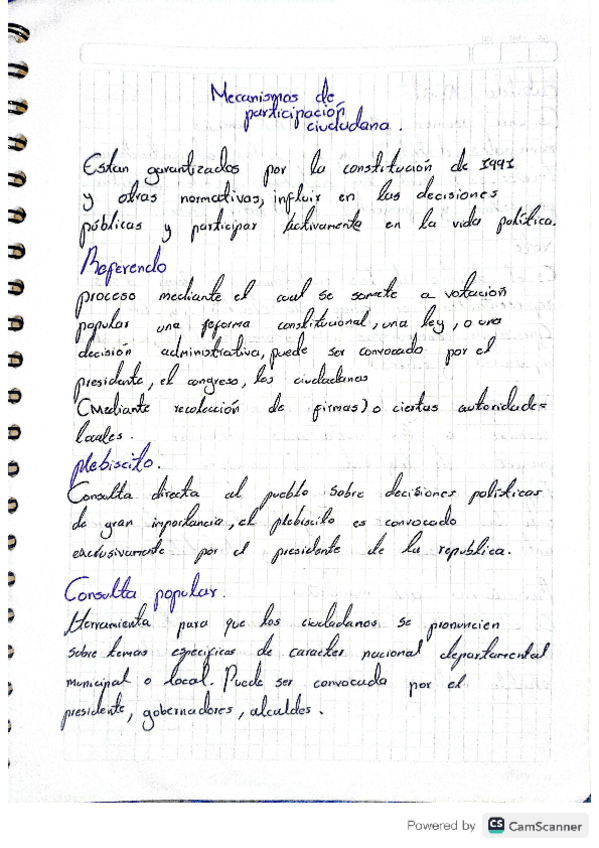 Mecanismos de
participación
ciudadana.
Estan garantizados por la constitución de 1991
y otras normativas, influir en las decisiones
públicas y participar activamente en la vida política.
Referendo
proceso mediante el cual se somete a votación
popular una reforma constitucional, una ley, o una
decisión administrativa, puede ser convocado por el
presidente, el congreso, los ciudadanos
(Mediante recolección de firmas) o ciertas autoridades
locales.
plebiscito.
Consulta directa al pueblo sobre decisiones políticas
de gran importancia, el plebiscito es convocado
exclusivamente por el presidente de la republica.
Consulta popular.
Herramienta para que los ciudadanos se pronuncien
sobre temas especificos de caracter nacional departamental
municipal o local. Puede ser convocada por el
presidente, gobernadores, alcaldes.
Powered by CS CamScanner